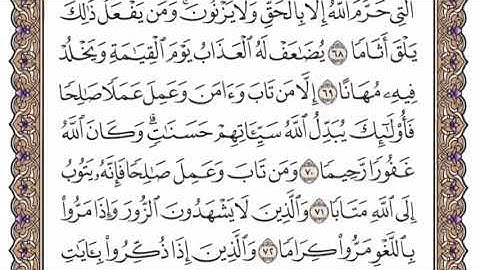 ٱلَّتِي حَرَّمَ ٱللَّهُ إِلَّا بِٱلۡحَقِّ وَلَا يَزۡنُونَۚ وَمَن يَفۡعَلۡ ذَٰلِكَ
يَلۡقَ أَثَامٗا ٦٨ يُضَٰعَفۡ لَهُ ٱلۡعَذَابُ يَوۡمَ ٱلۡقِيَٰمَةِ وَيَخۡلُدۡ
فِيهِۦ مُهَانًا ٦٩ إِلَّا مَن تَابَ وَءَامَنَ وَعَمِلَ عَمَلٗا صَٰلِحٗا
فَأُوْلَٰٓئِكَ يُبَدِّلُ ٱللَّهُ سَيِّـَٔاتِهِمۡ حَسَنَٰتٖۗ وَكَانَ ٱللَّهُ
غَفُورٗا رَّحِيمٗا ٧٠ وَمَن تَابَ وَعَمِلَ صَٰلِحٗا فَإِنَّهُۥ يَتُوبُ
إِلَى ٱللَّهِ مَتَابٗا ٧١ وَٱلَّذِينَ لَا يَشۡهَدُونَ ٱلزُّورَ وَإِذَا مَرُّواْ
بِٱللَّغۡوِ مَرُّواْ كِرَامٗا ٧٢ وَٱلَّذِينَ إِذَا ذُكِّرُواْ بِـَٔايَٰتِ